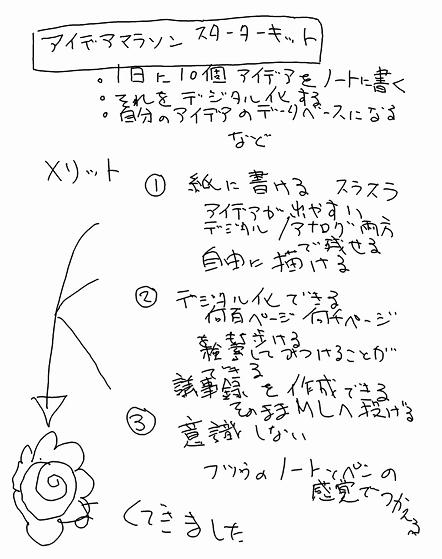 アイデアマラソン スターターキット
・1日に10個 アイデアをノートに書く
・それをデジタル化する
・自分のアイデアのデータベースになる
など
メリット
① 紙に書ける スラスラ
アイデアが出やすい
デジタル/アナログ両方
で残せる
自由に描ける
② デジタル化できる
何百ページ 何千ページ
持ち歩ける
検索してみつけることが
できる
議事録を作成できる
そのままMLへ投げる
③ 意識しない
フツウのノートとペンの
感覚でつかえる
てきました